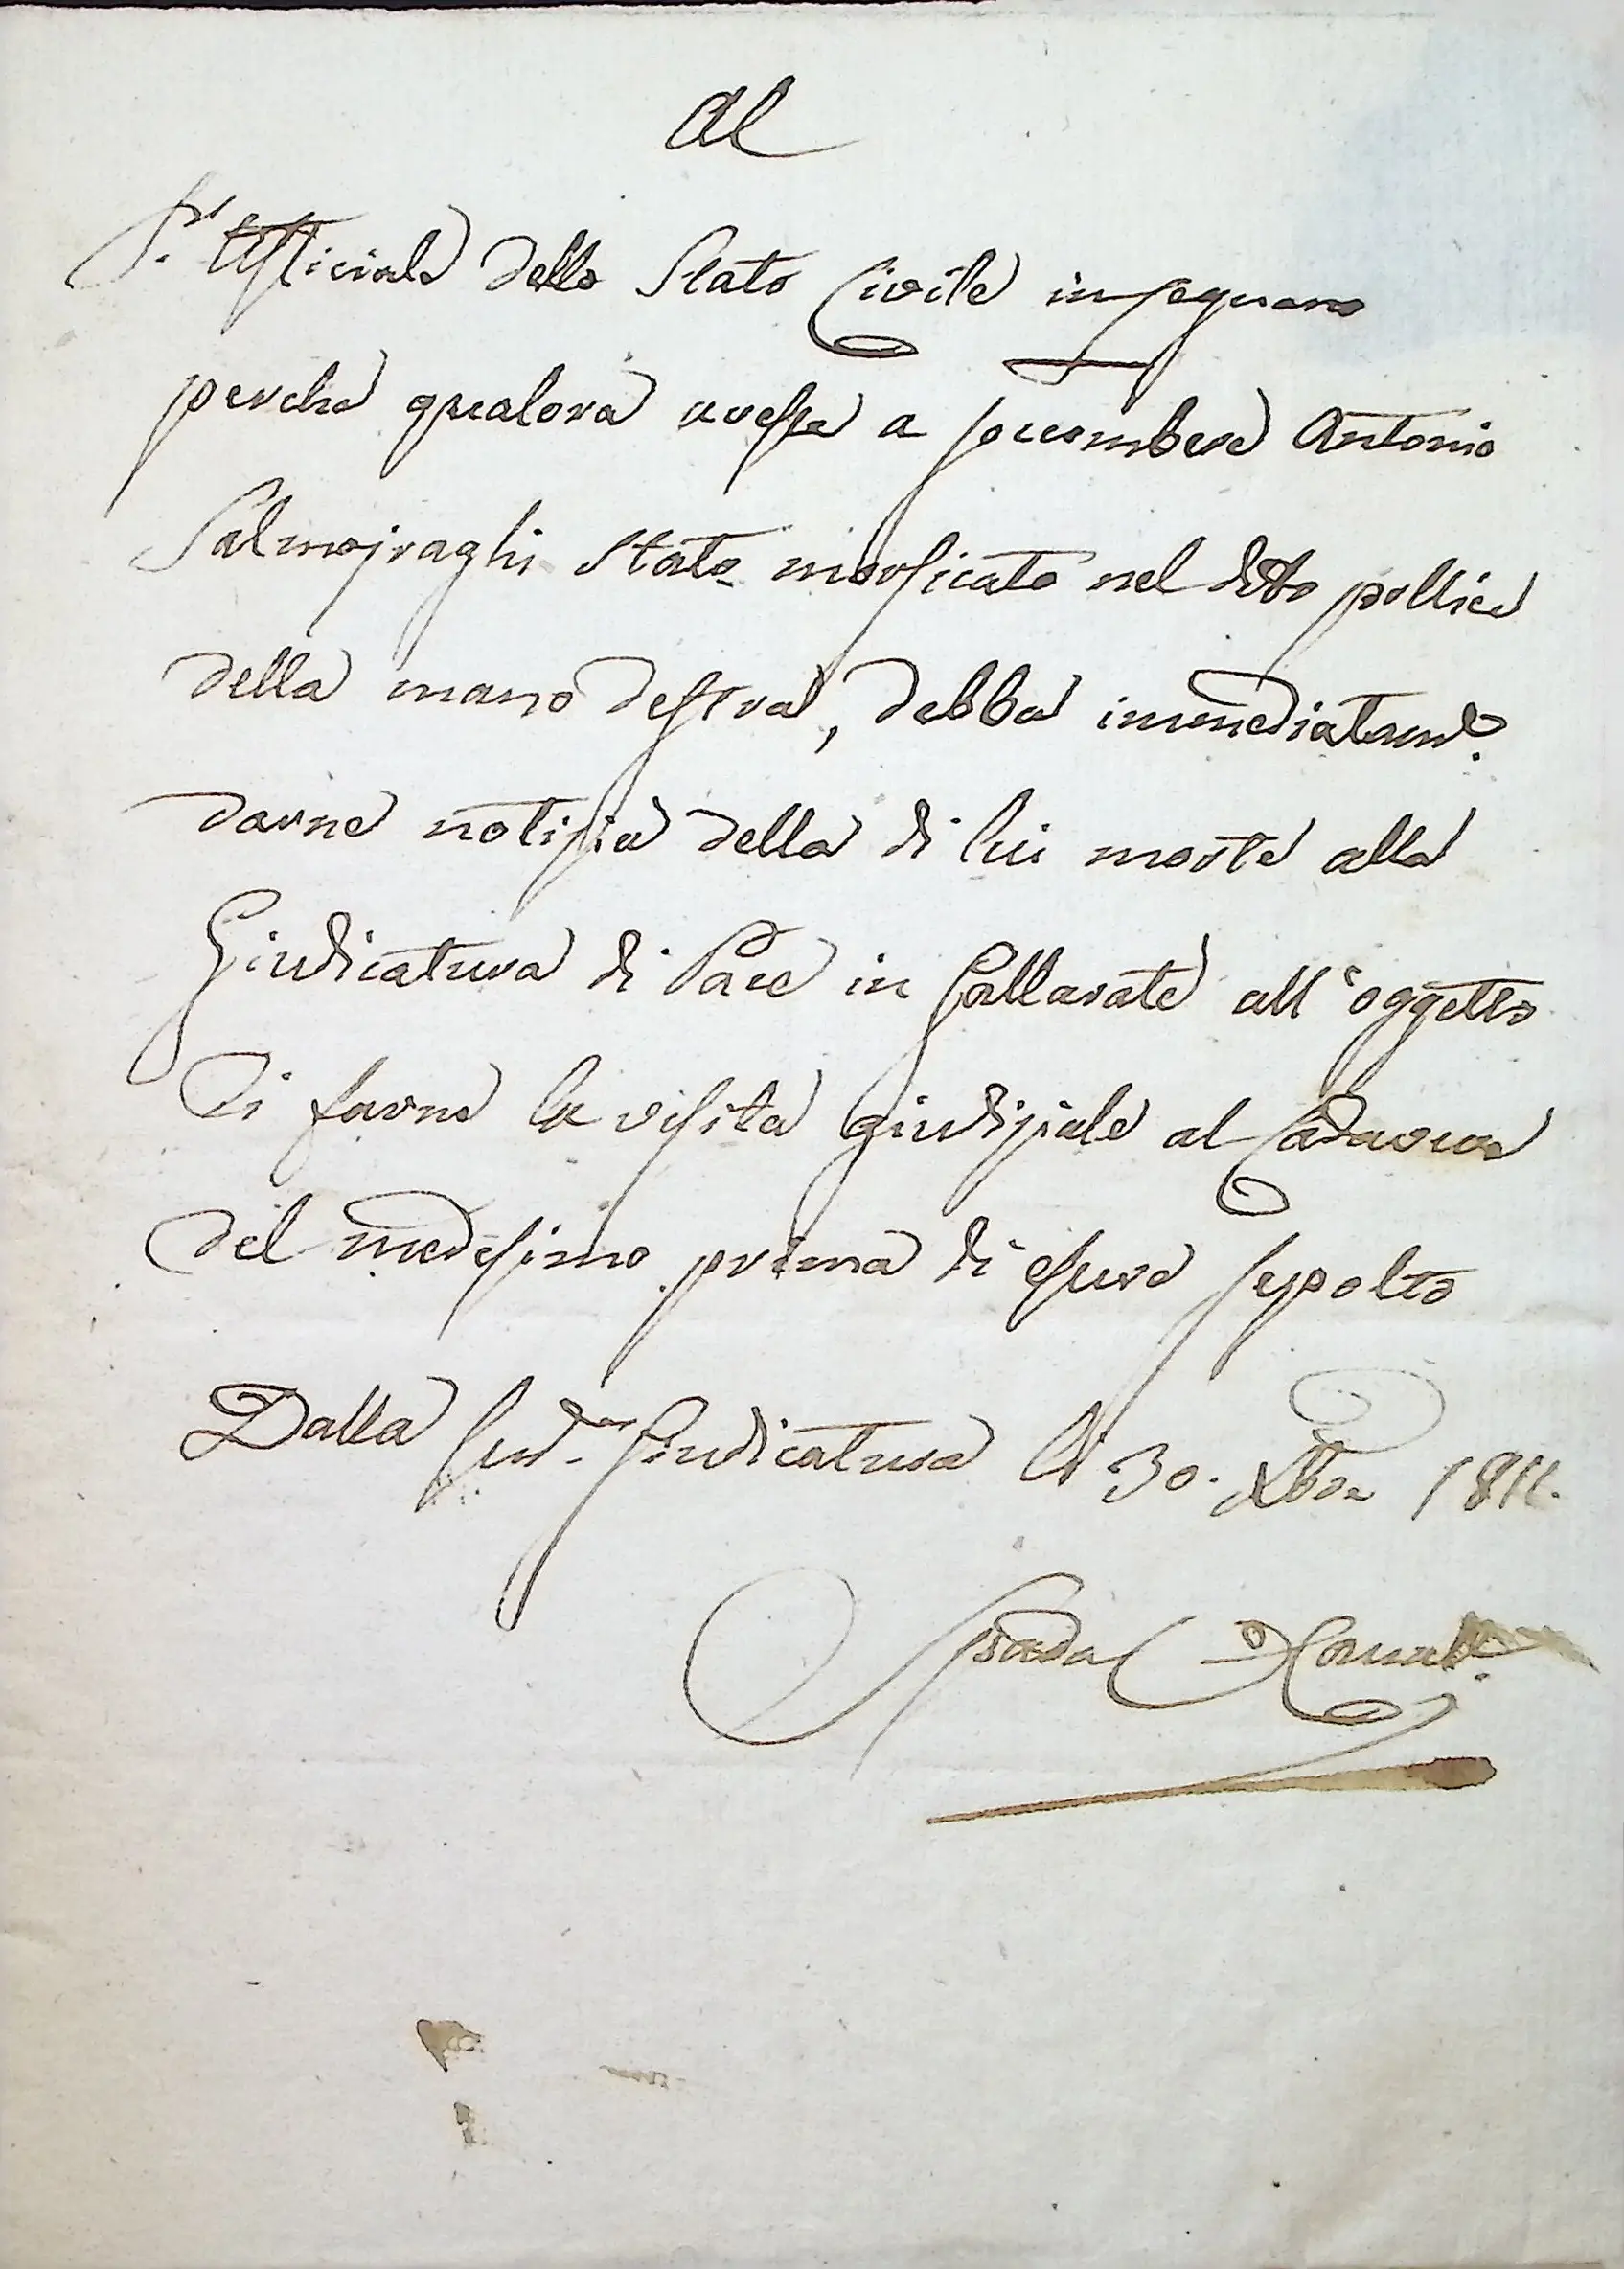 Al
S.r Ufficiale dello Stato Civile in Legnano
perche qualora avesse a soccombere Antonio
Salmojraghi stato morsicato nel dito pollice
della mano destra, debba immediatam.e
darne notizia della di lui morte alla
Giudicatura di Pace in Gallarate all'oggetto
di farne la visita giudiziale al Cadavere
del medesimo prima di essere sepolto
Dalla Sud.a Giudicatura li 30. Xbre 1811.
Spada